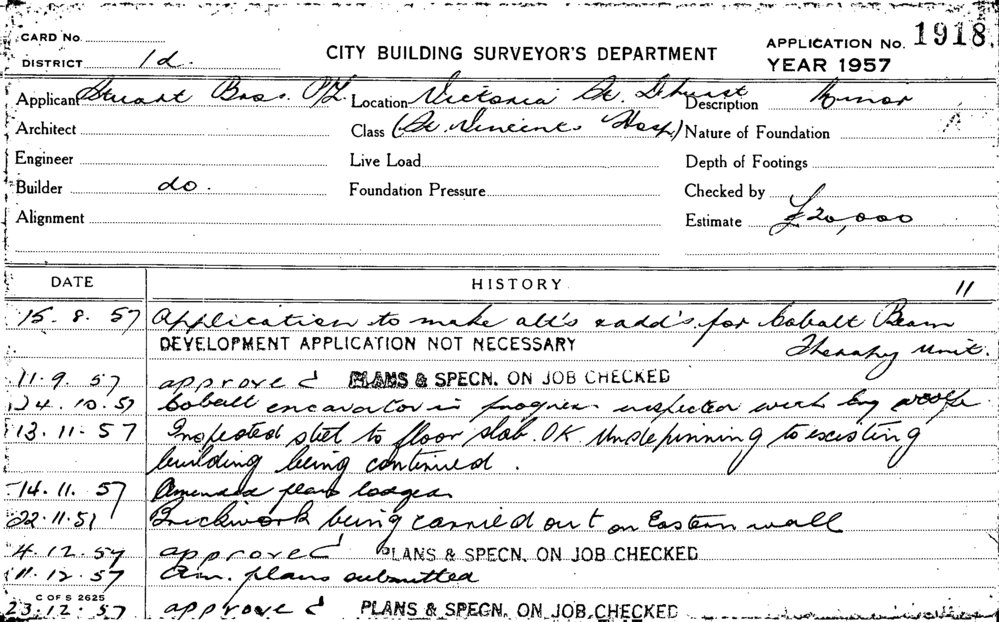 CARD No.
DISTRICT 1d.
CITY BUILDING SURVEYOR'S DEPARTMENT
APPLICATION No. 1918
YEAR 1957
Applicant Stuart Bros. P/L. Location Victoria St. D'hurst Description Minor
Architect Class (St. Vincents Hosp.) Nature of Foundation
Engineer Live Load Depth of Footings
Builder do. Foundation Pressure Checked by
Alignment Estimate £20,000
DATE HISTORY 11
15. 8. 57 Application to make alt's & add's for Cobalt Beam
DEVELOPMENT APPLICATION NOT NECESSARY Therapy Unit.
11. 9. 57 approved PLANS & SPECN. ON JOB CHECKED
24. 10. 57 Cobalt in progress
13. 11. 57 Inspected steel to floor slab. OK. Underpinning to existing
building being continued.
14. 11. 57 Amended plans lodged
22. 11. 57 Brickwork being carried out on Eastern wall
4. 12. 57 approved PLANS & SPECN. ON JOB CHECKED
11. 12. 57 Am. plans submitted
C OF S 2625
23. 12. 57 approved PLANS & SPECN. ON JOB CHECKED